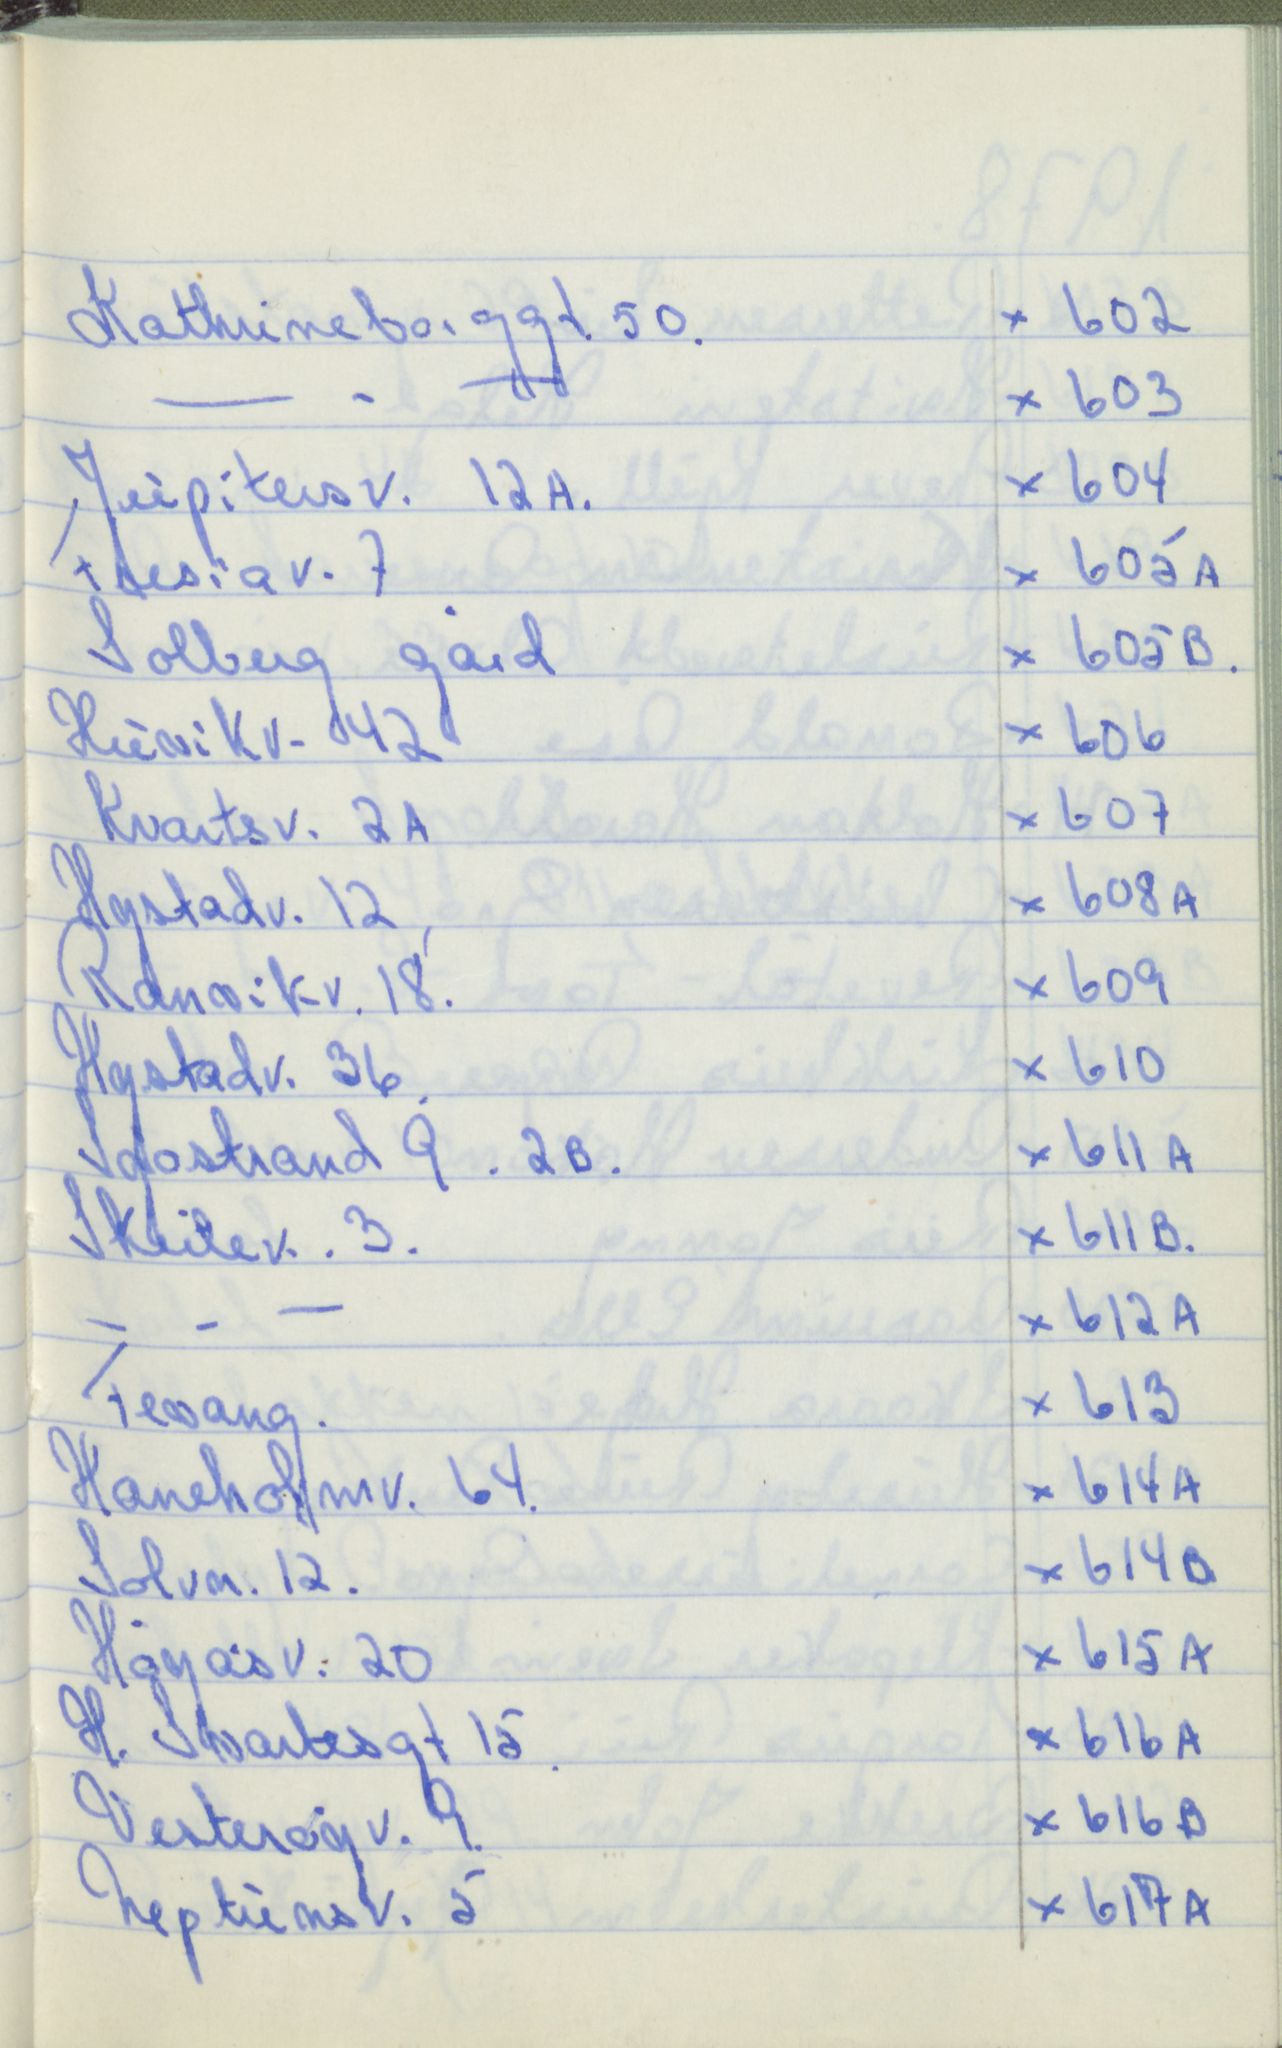 Kathrineborggt. 50. x 602
— - — x 603
Jupitersv. 12A. x 604
Fresiav. 7 x 605A
Solberg gård x 605B.
Husvikv- 42 x 606
Kvartsv. 2A x 607
Hystadv. 12, x 608A
Ranvikv. 18. x 609
Hystadv. 36 x 610
Sjøstrand 9. 2B. x 611A
Skeilev. 3. x 611B.
- - — x 612A
Fevang. x 613
Haneholmv. 64. x 614A
Solvn. 12. x 614B
Høyåsv. 20 x 615A
H. Svartesgt 15. x 616A
Vesterøyv. 9. x 616B
Neptunsv. 5 x 617A